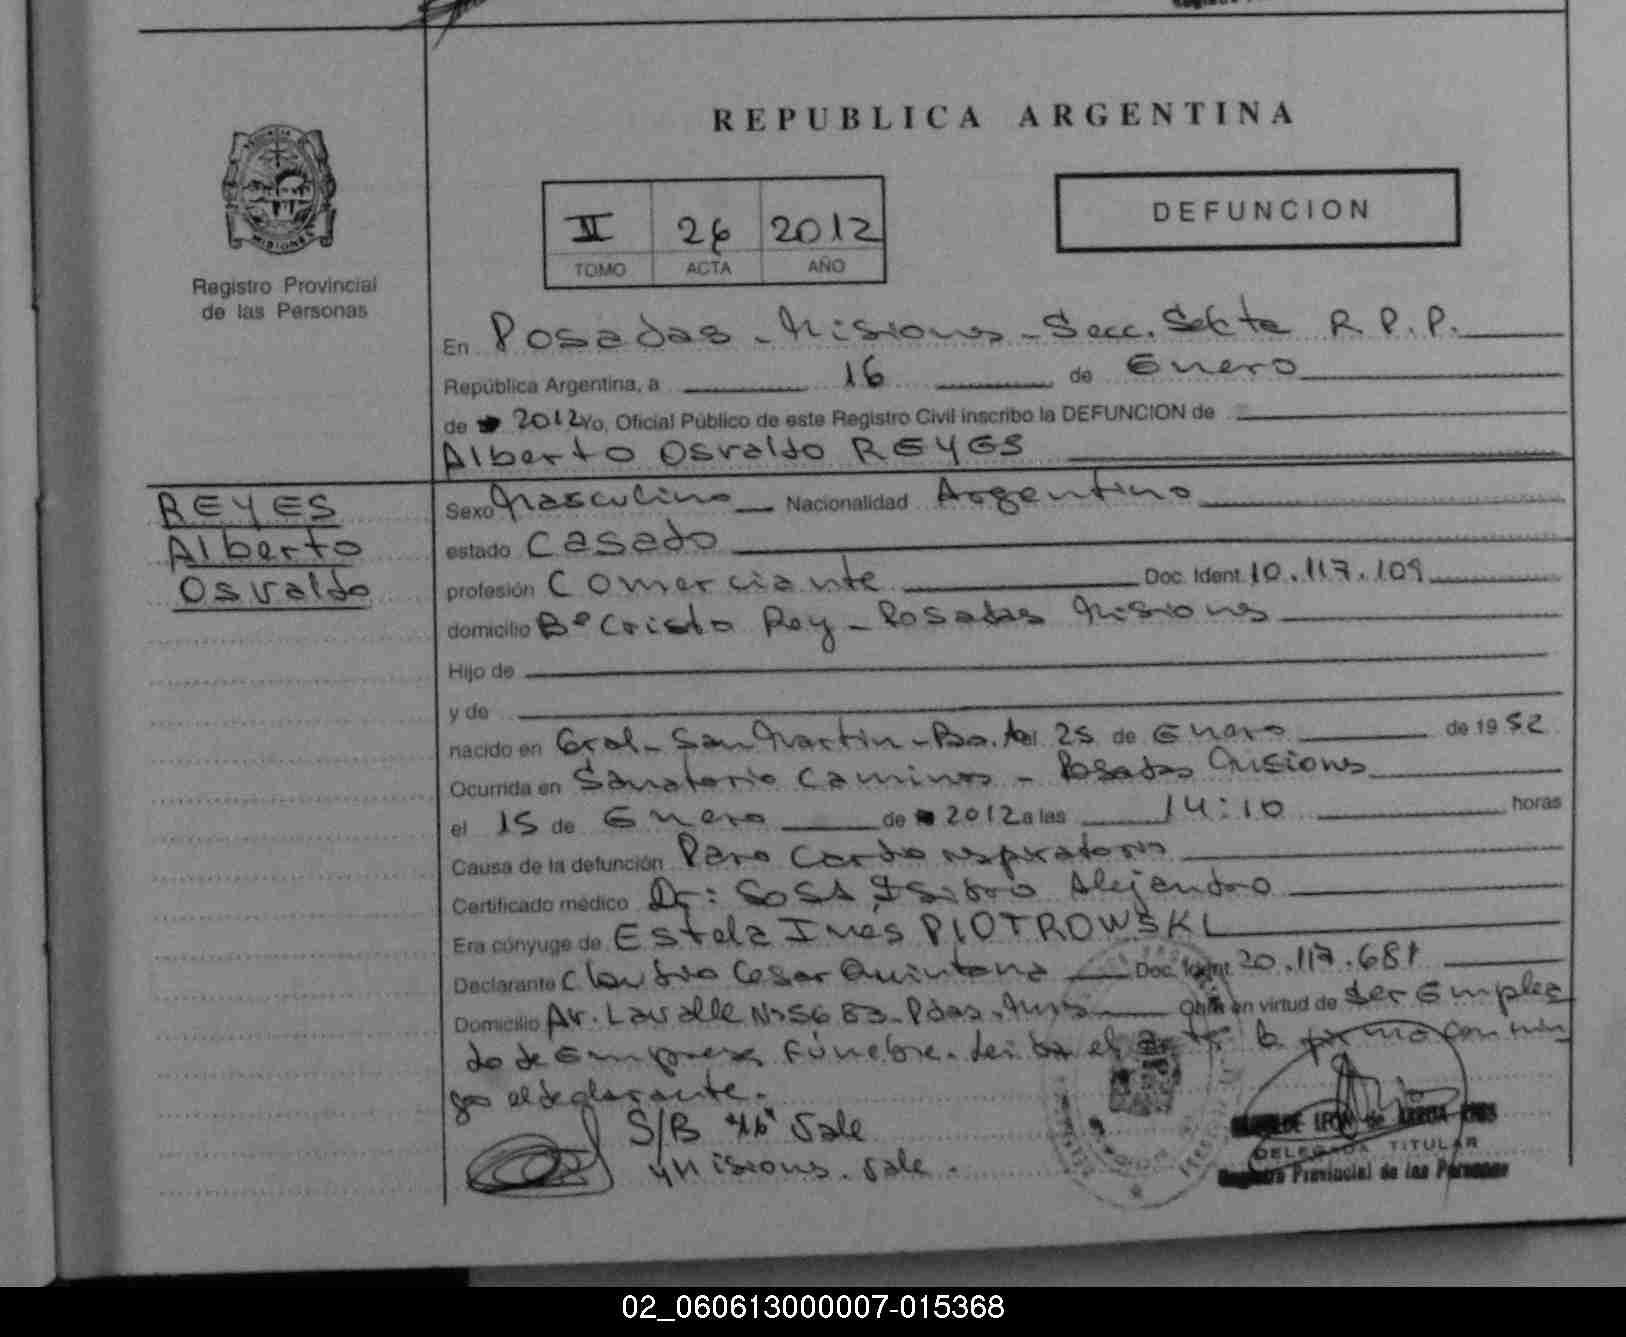 REPUBLICA ARGENTINA
MISIONES
Registro Provincial
de las Personas
II 26 2012
TOMO ACTA AÑO
DEFUNCION
En Posadas - Misiones - Secc. Sexta R.P.P.
República Argentina, a 16 de Enero
de 2012 Yo, Oficial Público de este Registro Civil inscribo la DEFUNCION de
Alberto Osvaldo REYES
REYES
Alberto
Osvaldo
Sexo Masculino Nacionalidad Argentino
estado Casado
profesión Comerciante Doc. Ident. 10.117.109
domicilio Bº Cristo Rey - Posadas Misiones
Hijo de
y de
nacido en Gral - San Martin - Bs. As. el 25 de Enero de 1952
Ocurrida en Sanatorio Caminos - Posadas Misiones
el 15 de Enero de 2012 a las 14:10 horas
Causa de la defunción Paro Cardio respiratorio
Certificado médico Dr: SOSA Isidro Alejandro
Era cónyuge de Estela Ines PIOTROWSKI
Declarante Claudio Cesar Quintana Doc. Ident. 20.117.681
Domicilio Av. Lavalle Nº 5683 - Pdas. Mnes Obra en virtud de ser Emplea
do de Empresa Fúnebre. Leida el acta la firma conmi
go el declarante.
S/B "16" Vale
y Misiones. Vale.
DELEGADA TITULAR
Registro Provincial de las Personas
02_060613000007-015368